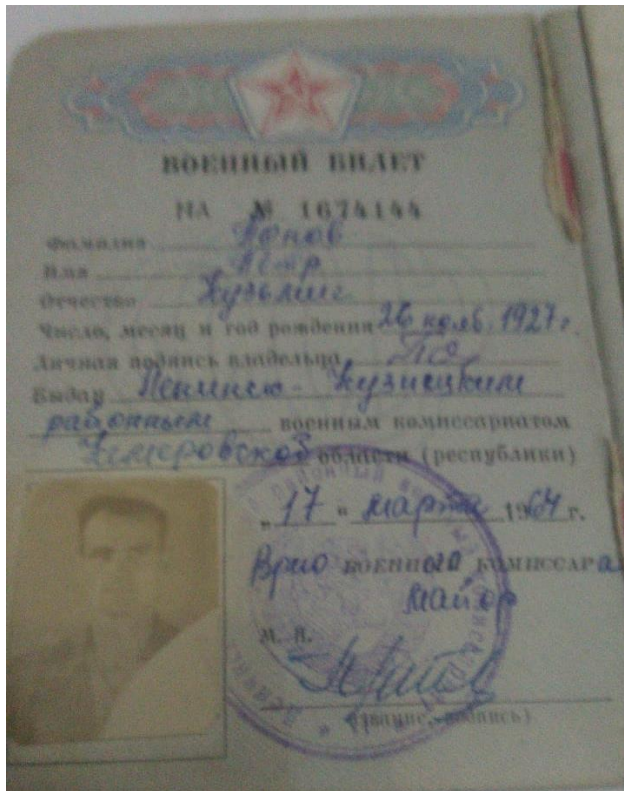 ВОЕННЫЙ БИЛЕТ
НА № 1674144
Фамилия Попов
Имя Петр
Отчество Кузьмич
Число, месяц и год рождения 26 нояб. 1927 г.
Личная подпись владельца
Выдан Ленинск-Кузнецким
районным военным комиссариатом
Кемеровской области (республики)
„17“ марта 1964 г.
Врио военного комиссара
майор
М. П.
(звание, подпись)